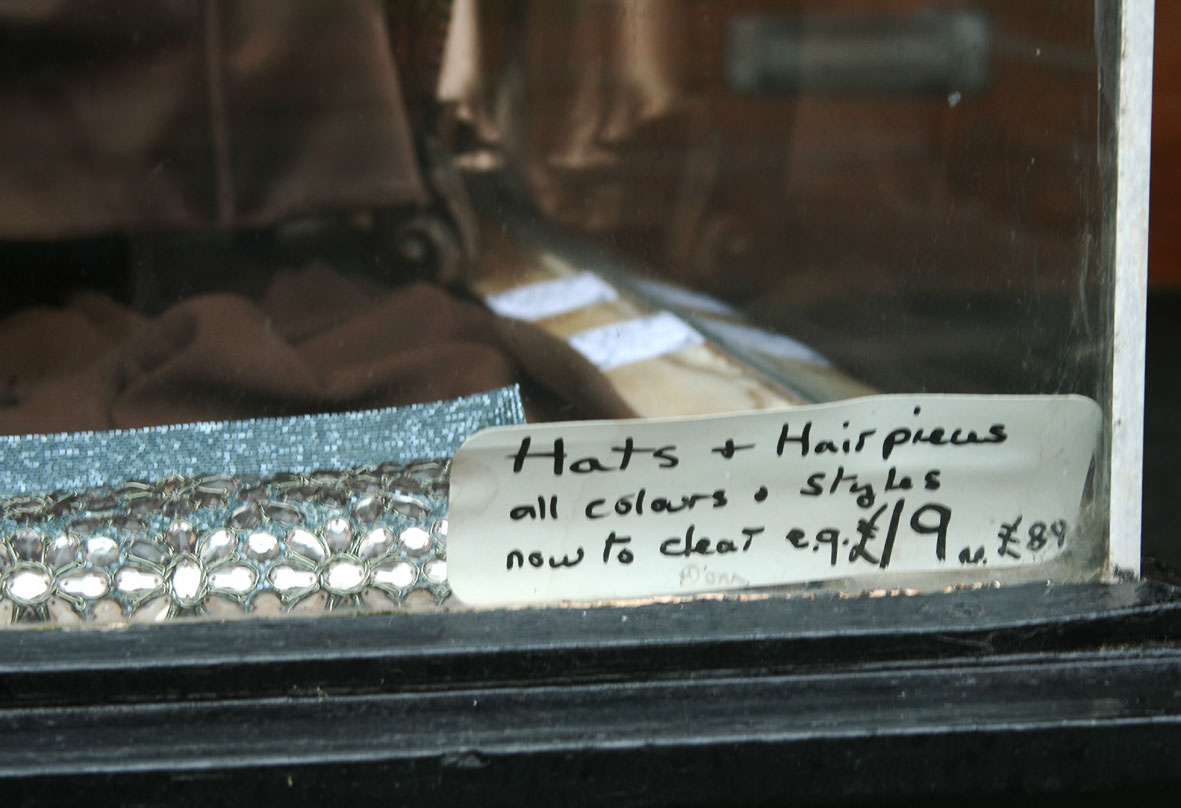 Hats + Hairpieces
all colours + styles
now to clear e.g. £19 w. £89